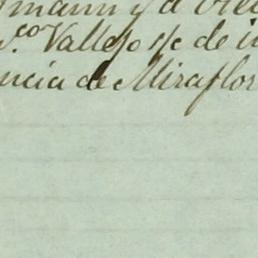 mann y d
co Vallejo s/c de
ncia de Miraflor